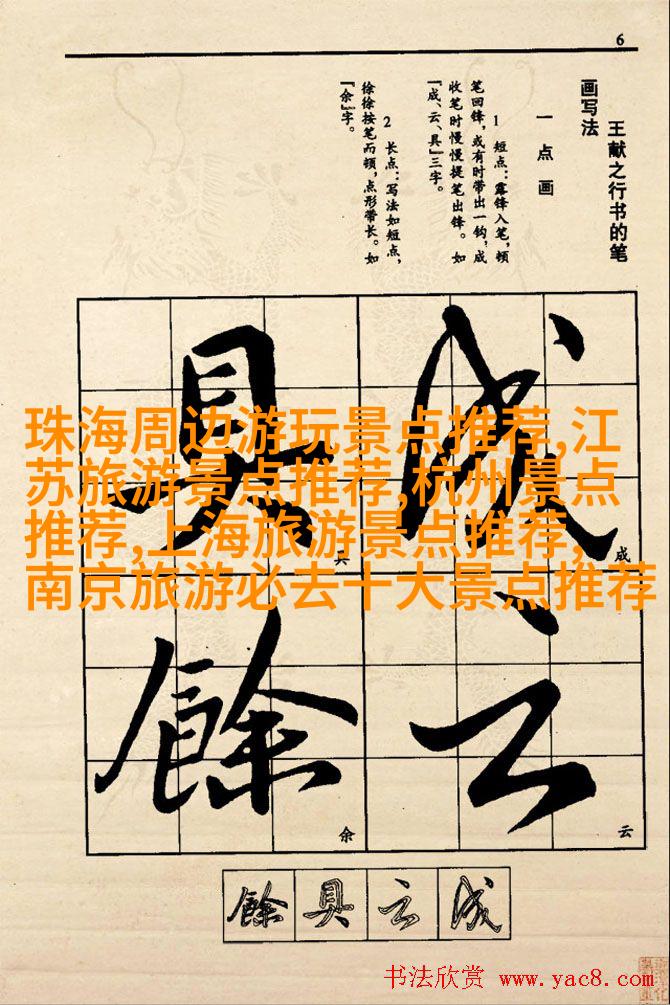 6
王献之行书的笔
画写法
一 点 画
1 短点：露锋入笔，顿
笔回锋，或有时带出一钩，成
收笔时慢慢提笔出锋。如
「成、云、具」三字。
2 长点：写法如短点，
徐徐按笔而顿，点形带长。如
「余」字。
成
具
云
餘
成
具
云
余
珠海周边游玩景点推荐,江
苏旅游景点推荐,杭州景点
推荐,上海旅游景点推荐,
南京旅游必去十大景点推荐
餘
具
云
成
书法欣赏 www.yac8.com